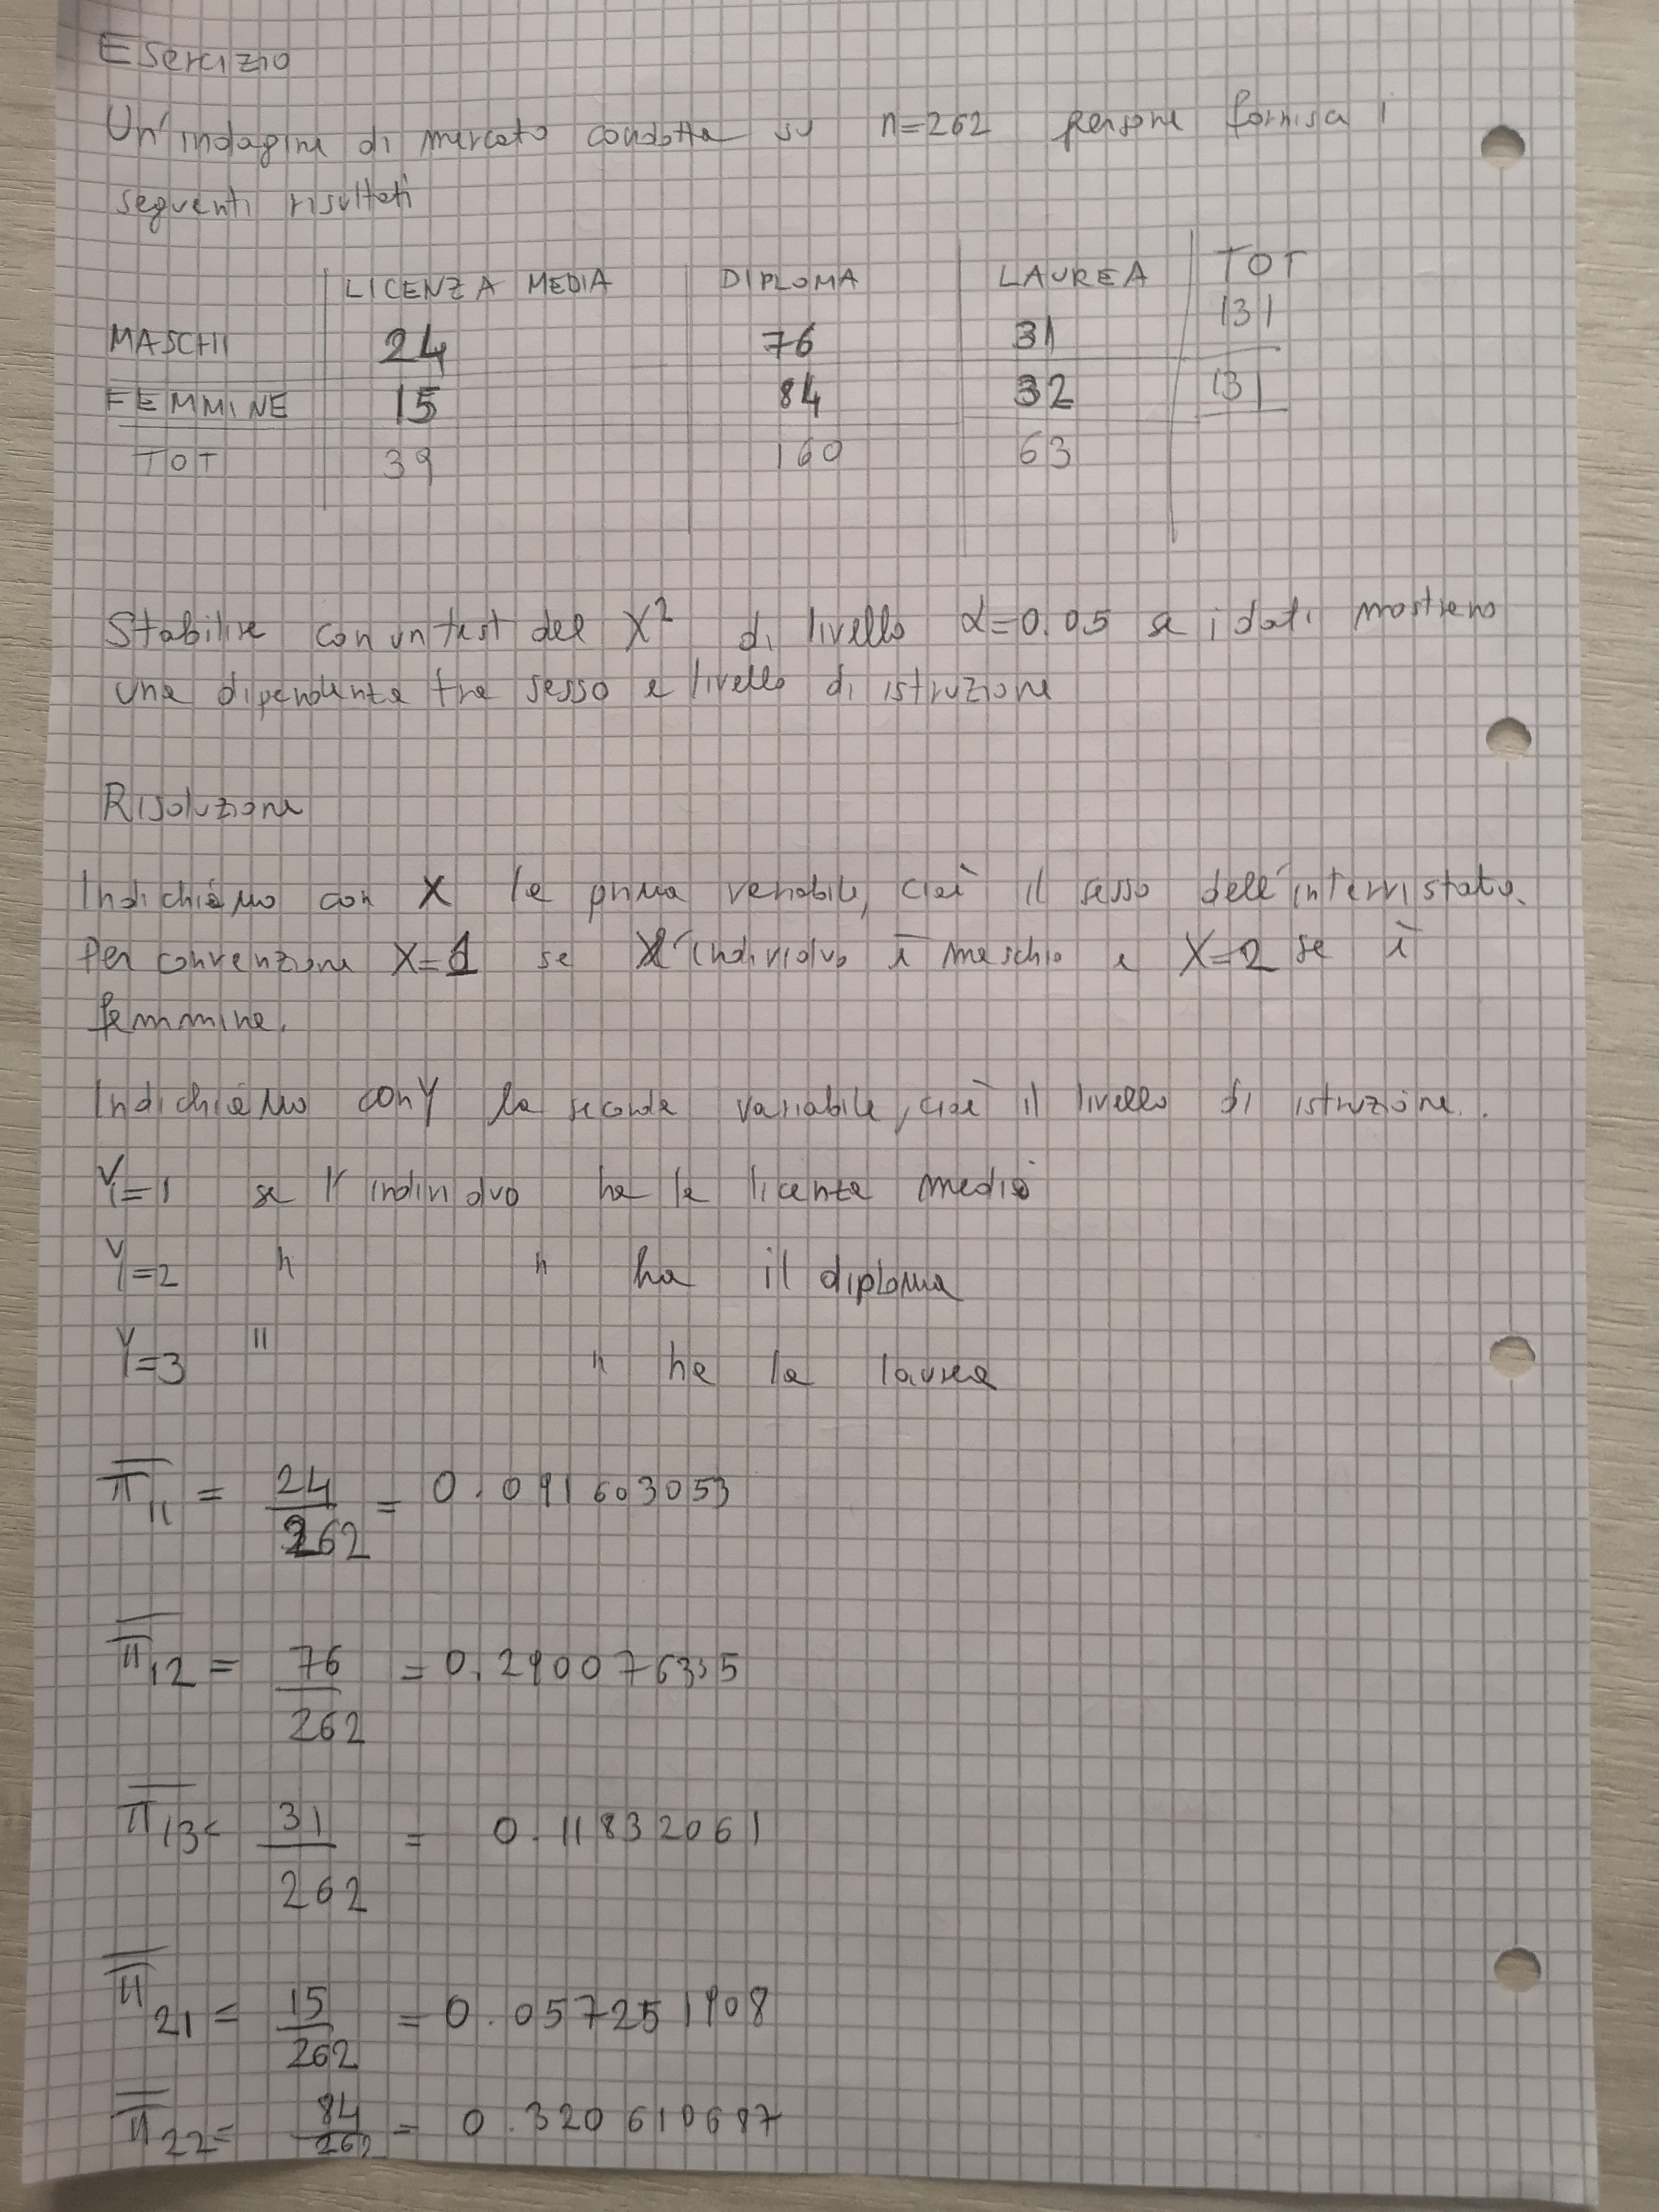 Esercizio
Un'indagine di mercato condotta su n=262 persone fornisca i
seguenti risultati
LICENZA MEDIA DIPLOMA LAUREA TOT
MASCHI 24 76 31 131
FEMMINE 15 84 32 131
TOT 39 160 63
Stabilire con un test del X² di livello α=0.05 se i dati mostrano
una dipendenza tra sesso e livello di istruzione
Risoluzione
Indichiamo con X la prima variabile, cioè il sesso dell'intervistato.
Per convenzione X=1 se l'individuo è maschio e X=2 se è
femmina.
Indichiamo con Y la seconda variabile, cioè il livello di istruzione.
Y=1 se l'individuo ha la licenza media
Y=2 " " ha il diploma
Y=3 " " ha la laurea
π̅₁₁ = 24/262 = 0.091603053
π̅₁₂ = 76/262 = 0.290076335
π̅₁₃ = 31/262 = 0.11832061
π̅₂₁ = 15/262 = 0.057251908
π̅₂₂ = 84/262 = 0.320610687